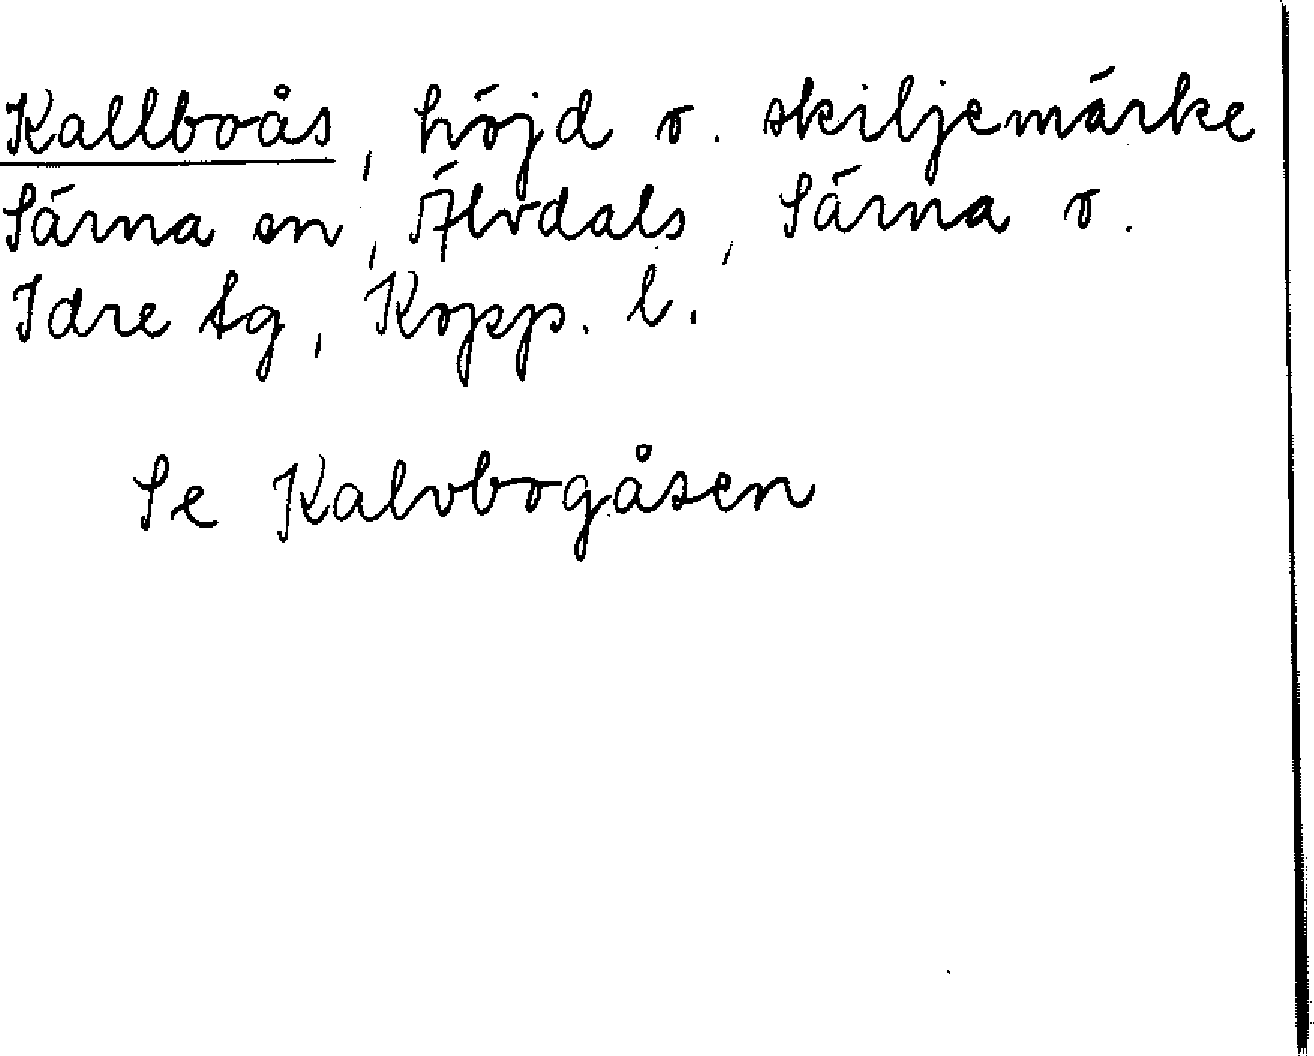 Kallboås, höjd o. skiljemärke
Särna sn, Älvdals, Särna o.
Idre tg, Kopp. l.
Se Kalvbogåsen